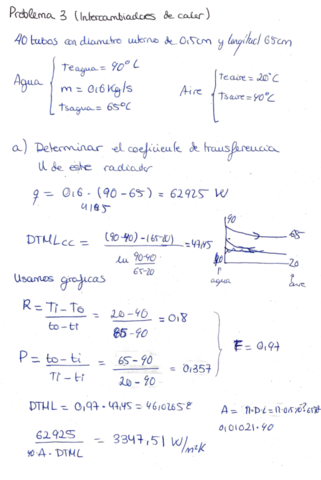 Problema 3 (Intercambiadores de calor)
40 tubos con diametro interno de 0,5cm y longitud 65cm
Agua
Te agua = 90ºC
m = 0,6 Kg/s
Ts agua = 65ºC
Aire
Te aire = 20ºC
Ts aire = 40ºC
a) Determinar el coeficiente de transferencia
U de este radiador
q = 0,6 · (90-65) = 62925 W
4195
DTMLcc = (90-40)-(65-20) = 47,45
ln 90-40
65-20
90
65
20
agua
aire
Usamos graficas
R = Ti-To / to-ti = 20-40 / 65-90 = 0,8
P = to-ti / Ti-ti = 65-90 / 20-90 = 0,357
F = 0,97
DTML = 0,97 · 47,45 = 46,02658
A =
0,01021·40
62925 = 3347,51 W/m²K
A · DTML